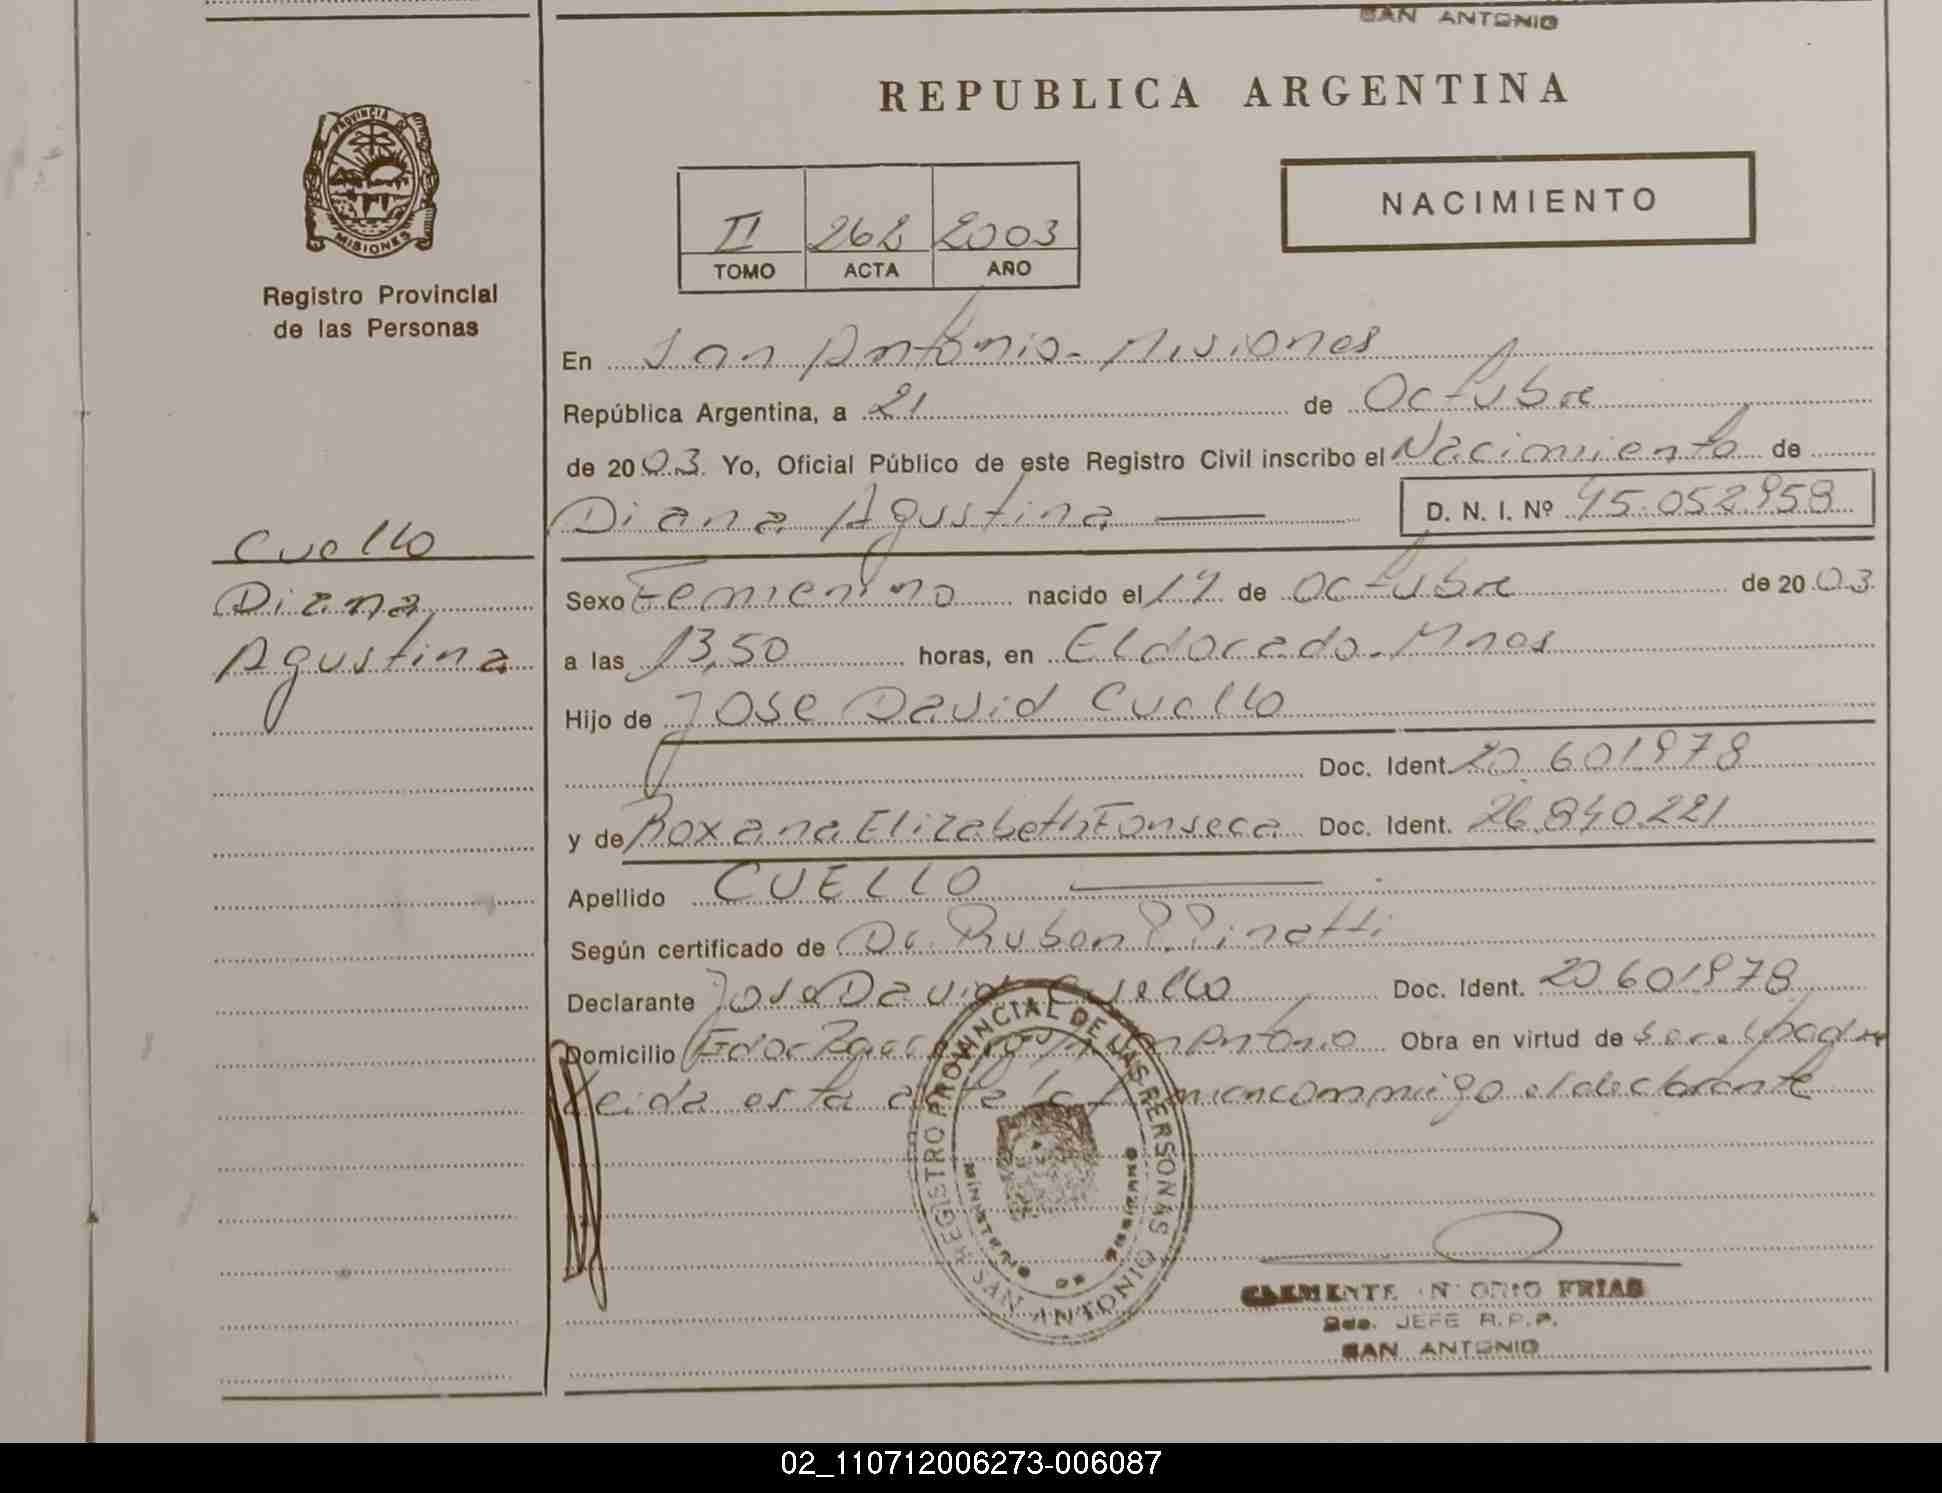 SAN ANTONIO
REPUBLICA ARGENTINA
PROVINCIA DE
MISIONES
Registro Provincial
de las Personas
NACIMIENTO
II 262 2003
TOMO ACTA AÑO
En San Antonio - Misiones
República Argentina, a 21 de Octubre
de 2003. Yo, Oficial Público de este Registro Civil inscribo el Nacimiento de
Diana Agustina D. N. I. Nº 45.052.958
Cuello
Diana
Agustina
Sexo Femenino nacido el 17 de Octubre de 2003
a las 13,50 horas, en Eldorado - Mnes
Hijo de Jose David Cuello
Doc. Ident. 20.601978
y de Roxana Elizabeth Fonseca Doc. Ident. 26.840.221
Apellido CUELLO
Según certificado de Dr. Ruben P. Pinatti
Declarante Jose David Cuello Doc. Ident. 20601978
Domicilio San Antonio Obra en virtud de
Leida esta acta la firman conmigo el declarante
REGISTRO PROVINCIAL DE LAS PERSONAS
MINISTERIO DE GOBIERNO
SAN ANTONIO
CLEMENTE FRIAS
JEFE R.P.P.
SAN ANTONIO
02_110712006273-006087